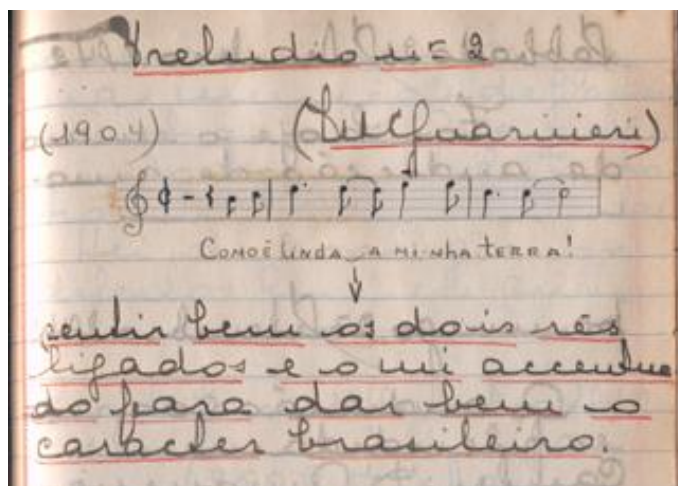 Preludio nº 2
(1904) (M Guarnieri)
COMO É LINDA A MINHA TERRA!
sentir bem os dois rés
ligados e o mi accentua
do para dar bem o
caracter brasileiro.